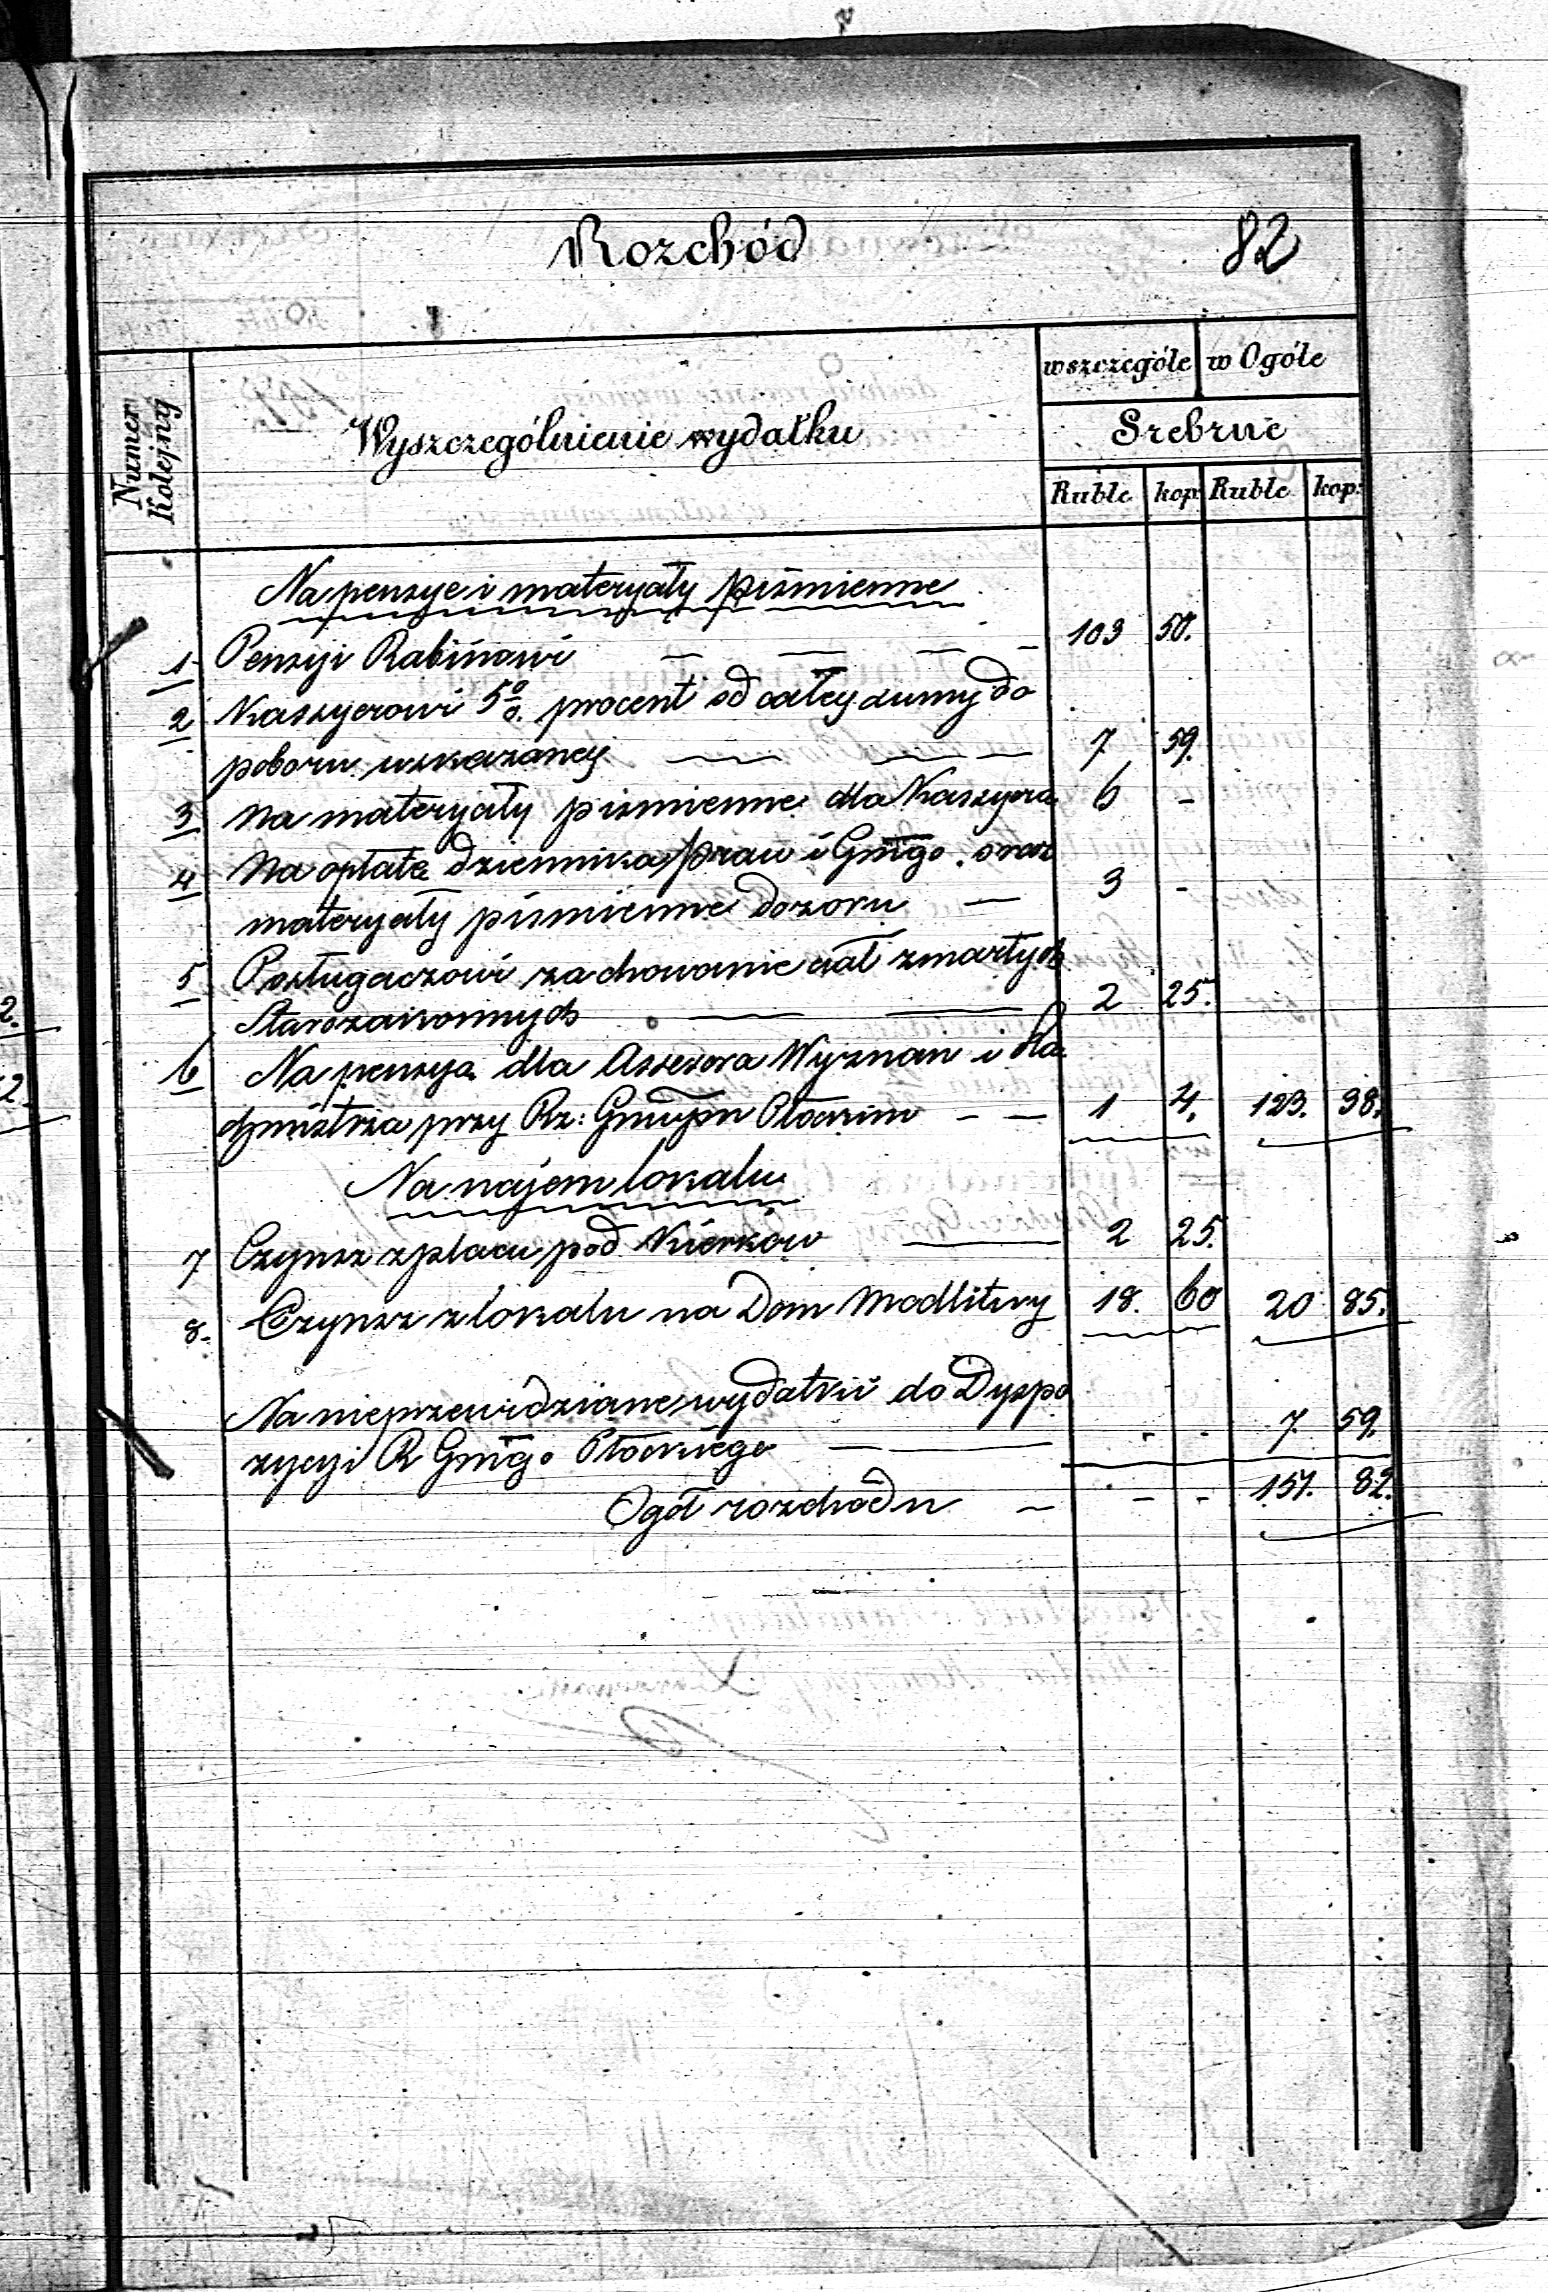 Rozchód 82
Numer Kolejny
Wyszczególnienie wydatku
w szczególe w Ogóle
Srebrne
Ruble kop: Ruble kop:
Na pensye i materyały piśmienne
1 Pensyi Rabinowi — — — — 103 50.
2 Kassyerowi 5% procent od całey summy do
poboru wskazaney — — — 7 59.
3 Na materyały piśmienne dla Kassyera 6 -
4 Na opłatę dziennika praw i Gnigo. oraz
materyały piśmienne dozoru — 3 -
5 Posługaczowi za chowanie ciał zmarłych
Starozakonnych — — 2 25.
6 Na pensyą dla Assesora Wyznań i
przy Rz: Płockim — — 1 4. 123. 38.
Na najem lokalu
7 Czynsz z placu pod Kierków — 2 25.
8. Czynsz z lokalu na Dom Modlitwy 18. 60 20 85.
Na nieprzewidziane wydatki do Dyspo
zycyi R Gnigo Płockiego — — - - 7. 59.
Ogół rozchodu — - - 151. 82.